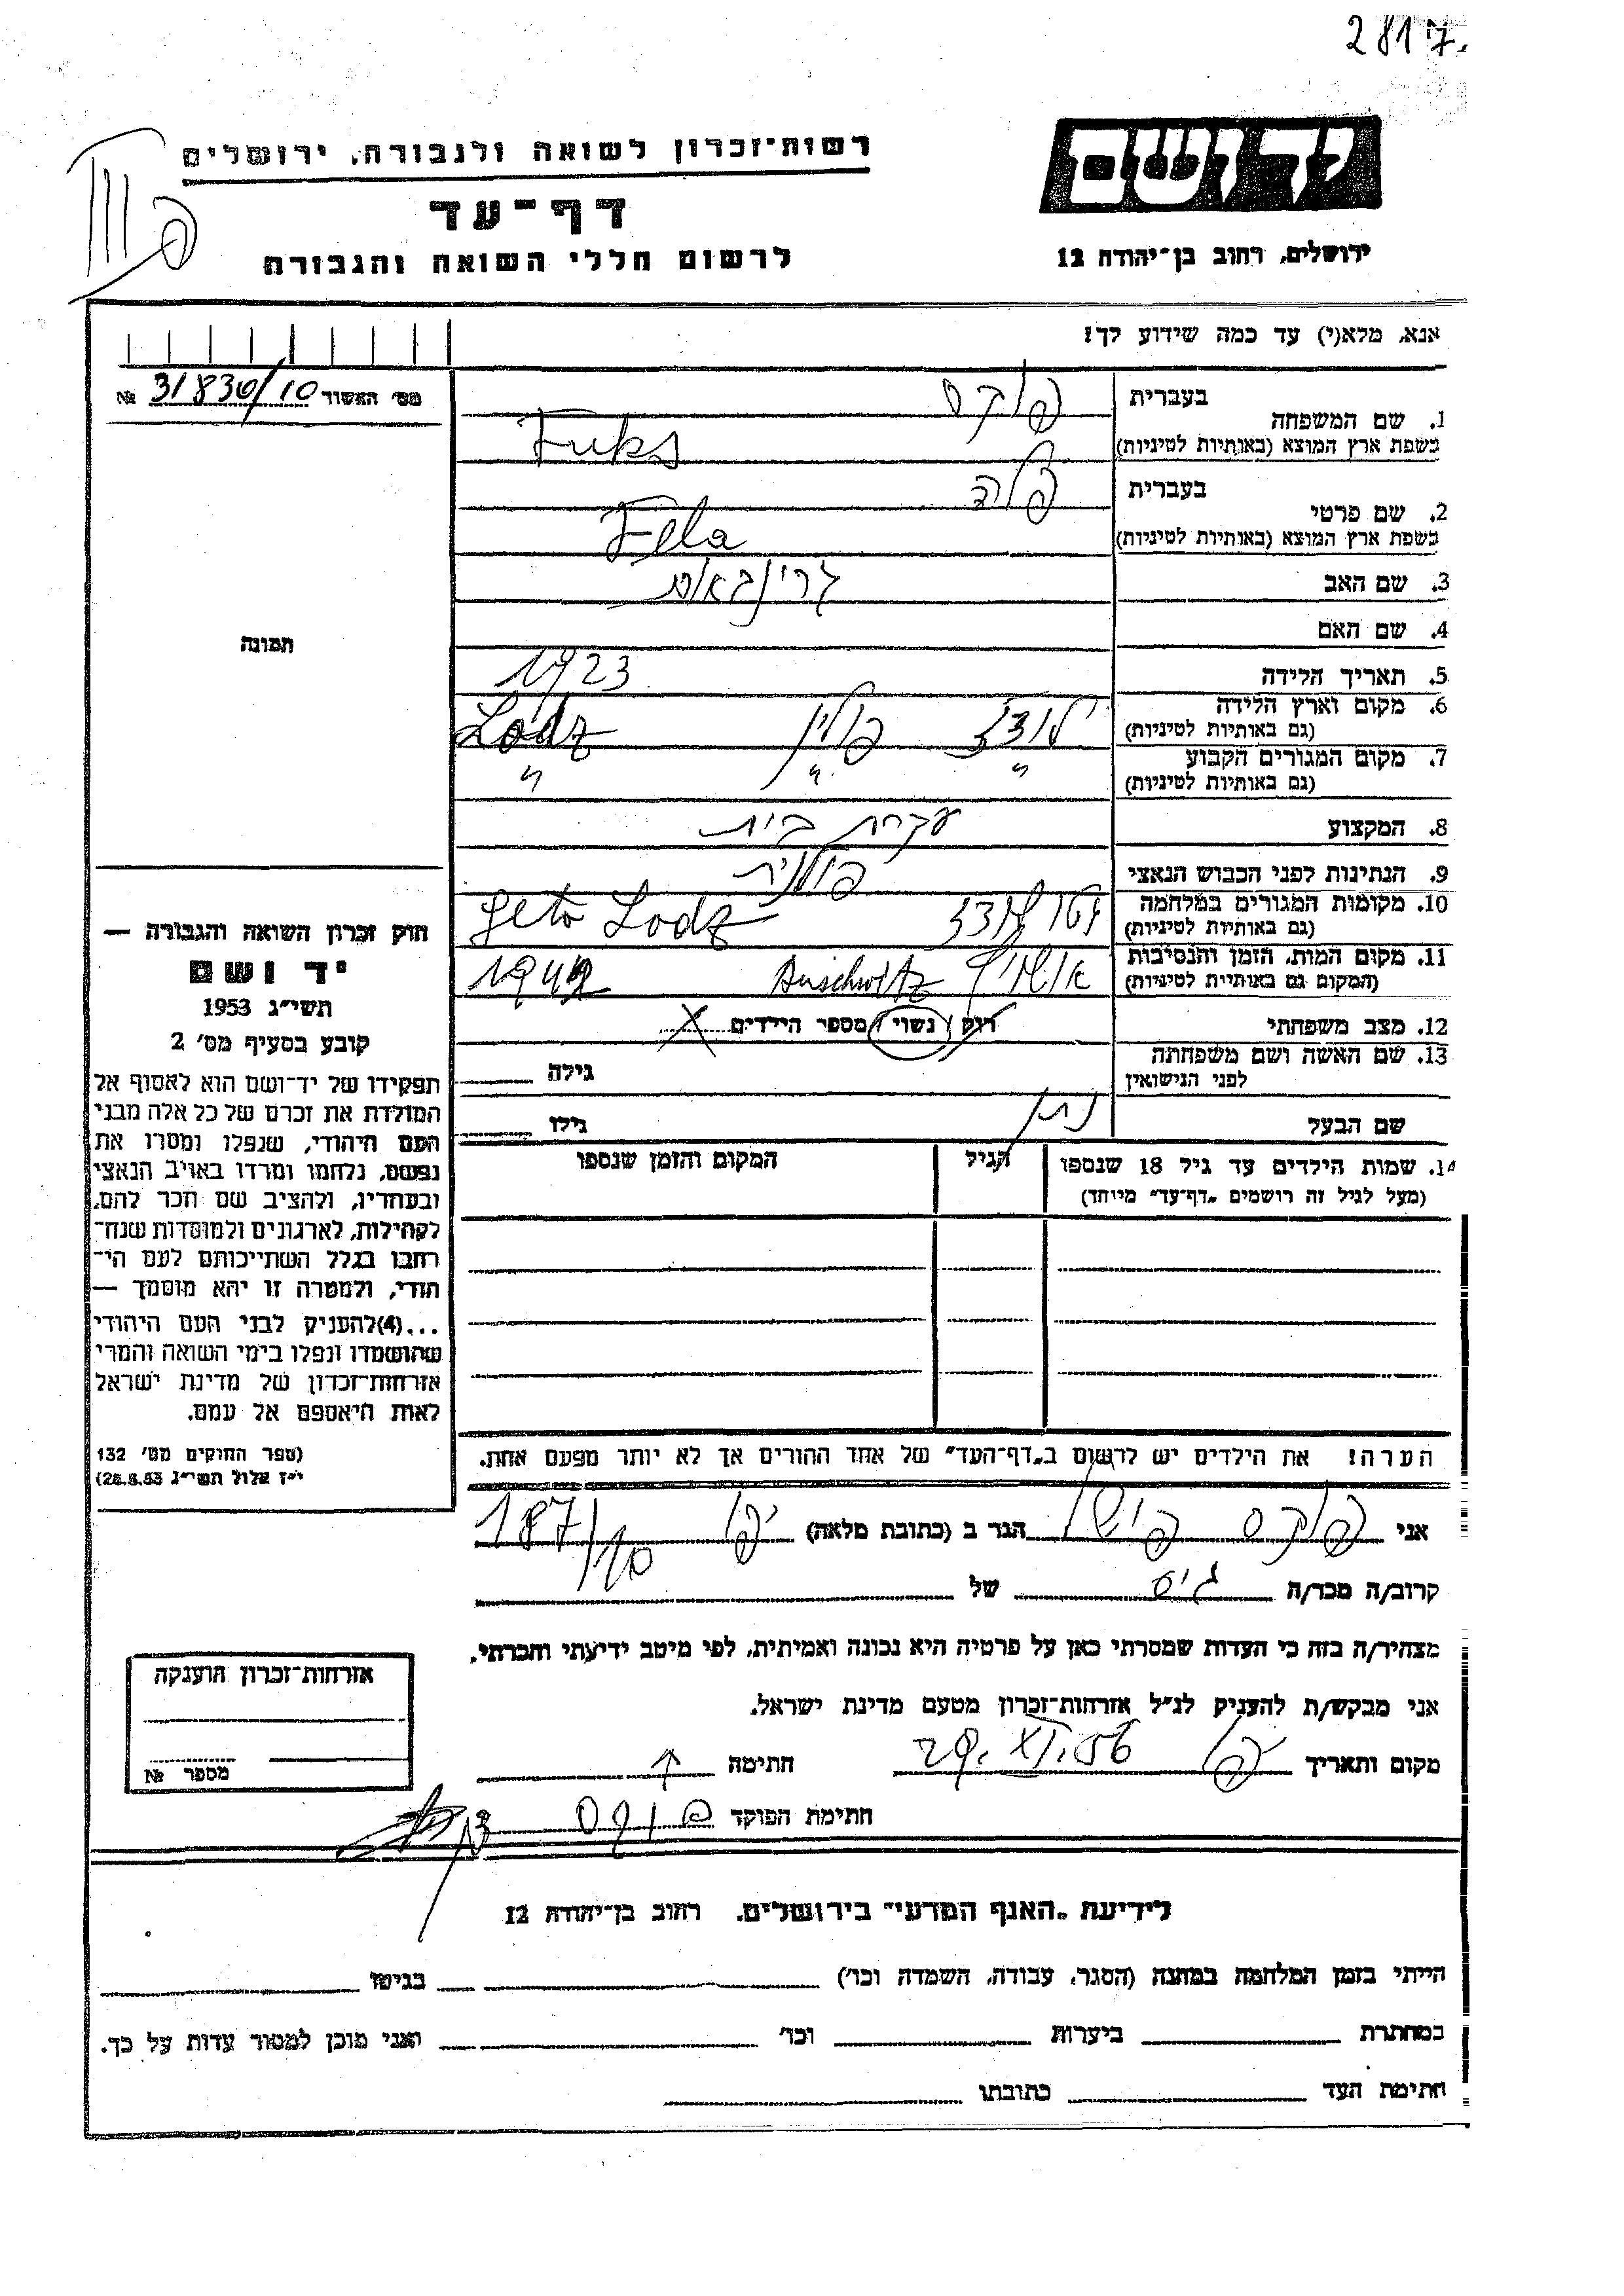 2817.
יד ושם
רשות־זכרון לשואה ולגבורה, ירושלים
דף־עד
לרשום חללי השואה והגבורה
ירושלים, רחוב בן־יהודה 12
אנא, מלא(י) עד כמה שידוע לך!
מס׳ האשור 31830/10 №
1. שם המשפחה
בעברית פוקס
בשפת ארץ המוצא (באותיות לטיניות) Fuks
2. שם פרטי
בעברית פלה
בשפת ארץ המוצא (באותיות לטיניות) Fela
3. שם האב גרינבאום
4. שם האם
תמונה
5. תאריך הלידה 1923
6. מקום וארץ הלידה לודז פולין Lodz
(גם באותיות לטיניות)
7. מקום המגורים הקבוע " " "
(גם באותיות לטיניות)
8. המקצוע עקרת בית
9. הנתינות לפני הכבוש הנאצי פולנית
10. מקומות המגורים במלחמה גטו לודז Geto Lodz
(גם באותיות לטיניות)
11. מקום המות, הזמן והנסיבות Auschwitz
(המקום גם באותיות לטיניות)
12. מצב משפחתי רוק / נשוי / מספר הילדים X
13. שם האשה ושם משפחתה
לפני הנישואין גילה
שם הבעל נתן גילו
14. שמות הילדים עד גיל 18 שנספו הגיל המקום והזמן שנספו
(מעל לגיל זה רושמים „דף־עד״ מיוחד)
חוק זכרון השואה והגבורה —
יד ושם
תשי״ג 1953
קובע בסעיף מס׳ 2
תפקידו של יד־ושם הוא לאסוף אל
המולדת את זכרם של כל אלה מבני
העם היהודי, שנפלו ומסרו את
נפשם, נלחמו ומרדו באויב הנאצי
ובעוזריו, ולהציב שם וזכר להם,
לקהילות, לארגונים ולמוסדות שנח־
רבו בגלל השתייכותם לעם הי־
הודי, ולמטרה זו יהא מוסמך —
...(4)להעניק לבני העם היהודי
שהושמדו ונפלו בימי השואה והמרי
אזרחות־זכרון של מדינת ישראל
לאות היאספם אל עמם.
(ספר החוקים מס׳ 132
י״ז אלול תשי״ג 28.8.53)
הערה! את הילדים יש לרשום ב„דף־העד״ של אחד ההורים אך לא יותר מפעם אחת.
אני פוקס הגר ב (כתובת מלאה) יפו 187/
קרוב/ה מכר/ה גיס של
מצהיר/ה בזה כי העדות שמסרתי כאן על פרטיה היא נכונה ואמיתית, לפי מיטב ידיעתי והכרתי.
אני מבקש/ת להעניק לנ״ל אזרחות־זכרון מטעם מדינת ישראל.
מקום ותאריך יפו 29.XI.56 חתימה
חתימת הפוקד
אזרחות־זכרון הוענקה
מספר №
לידיעת „האגף המדעי״ בירושלים, רחוב בן־יהודה 12
הייתי בזמן המלחמה במחנה (הסגר, עבודה, השמדה וכו׳) בגיטו
במחתרת ביערות וכו׳ ואני מוכן למסור עדות על כך.
חתימת העד כתובתו